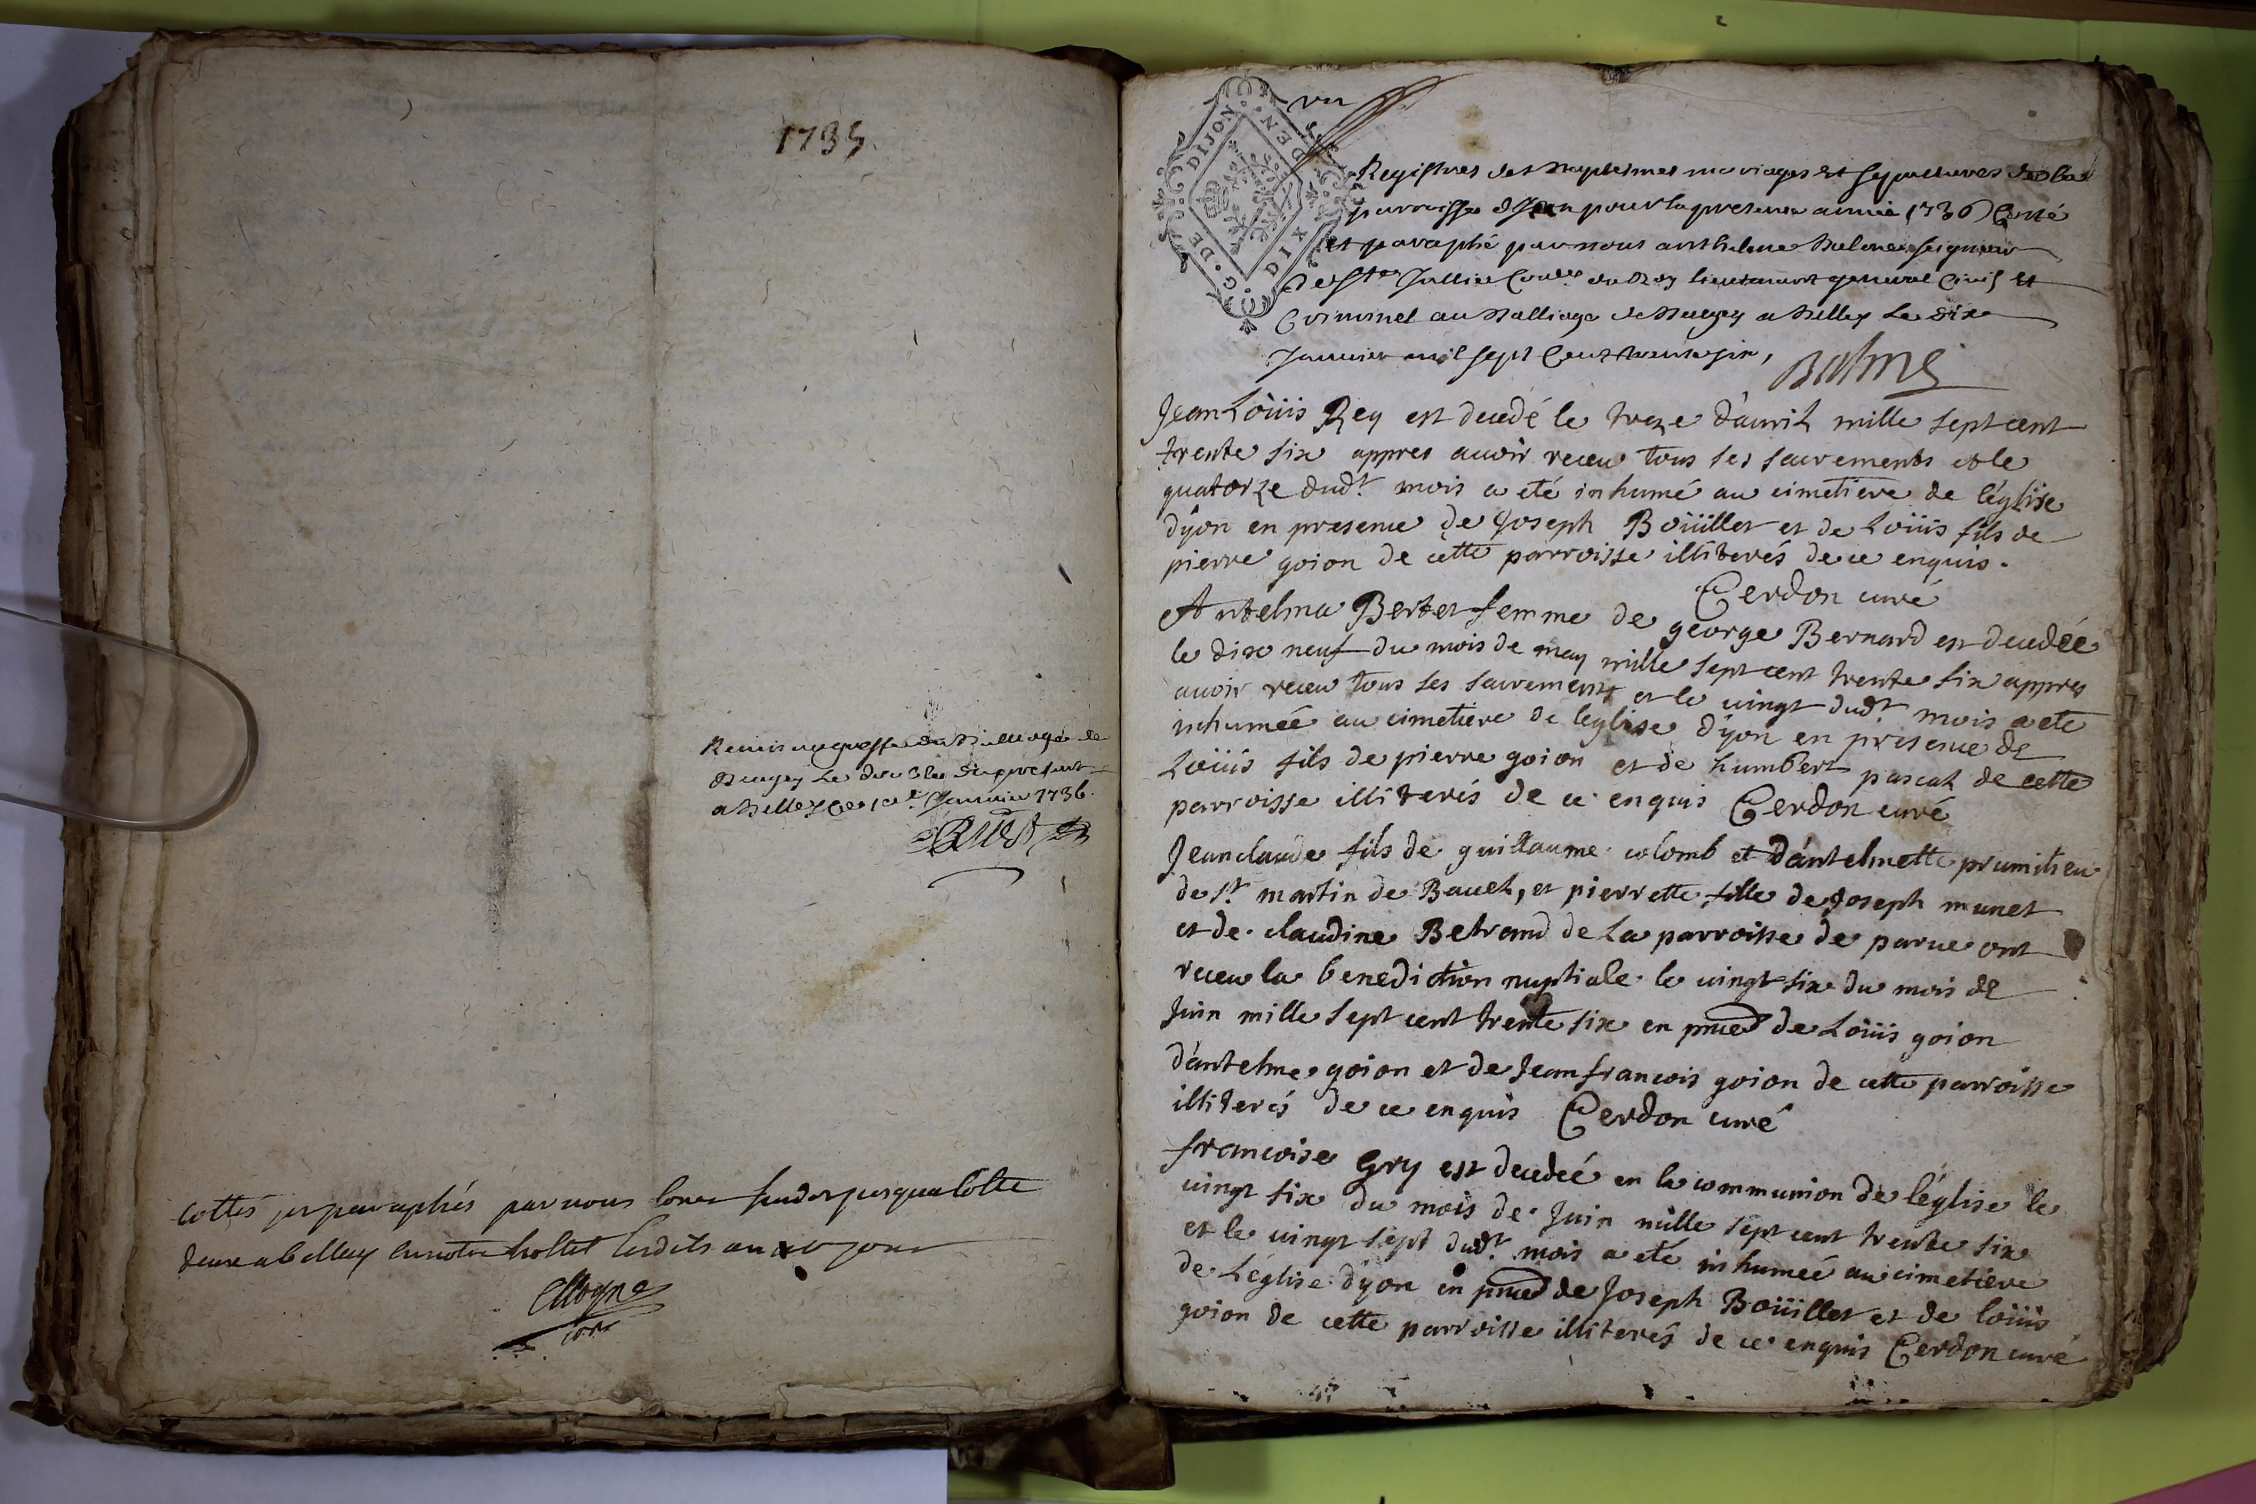 1735
Remis au greffe du Bailliage de
Beugey le double du present
a Belley ce 10e Janvier 1736.
cottés et paraphés par nous
deux a belley en notre hostel lesdits an et jour
un
G. DE DIJON
DIX DEN
Registres des Baptesmes mariages et sepultures de la
parroisse dyon pour la presente année 1736 Cotté
et paraphé par nous anthelme Balme seigneur
de Ste Jullie Conler du Roy lieutenant general Civil et
Criminel au Balliage de Beugey a Belley le dix
Janvier mil sept Cent trente six,
Balme
Jean Loüis Rey est decedé le treze d'avril mille sept cent
trente six appres avoir receu tous ses sacrements et le
quatorze dudt. mois a eté inhumé au cimetiere de léglise
dyon en presence de Joseph Boüillet et de Loüis fils de
pierre goion de cette parroisse illiterés de ce enquis.
Cerdon curé
Antelma Bertet femme de george Bernard est decedée
le dix neuf du mois de may mille sept cent trente six appres
avoir receu tous ses sacrements et le vingt dudt. mois a eté
inhumée au cimetiere de leglise dyon en presence de
Loüis fils de pierre goion et de humbert pascal de cette
parroisse illiterés de ce enquis Cerdon curé
Jean claude fils de guillaume colomb et d'antelmette prumilieu
de st. martin de Bavel, et pierrette fille de Joseph munet
et de claudine Betrand de La parroisse de parve ont
receu la benediction nuptiale le vingt six du mois de
Juin mille sept cent trente six en pnce de Loüis goion
d'antelme goion et de Jean francois goion de cette parroisse
illiterés de ce enquis Cerdon curé
francoise Gry est decedeé en la communion de léglise le
vingt six du mois de Juin mille sept cent trente six
et le vingt sept dudt. mois a eté inhumeé au cimetiere
de Léglise dyon en pnce de Joseph Boüillet et de loüis
goion de cette parroisse illiterés de ce enquis Cerdon curé